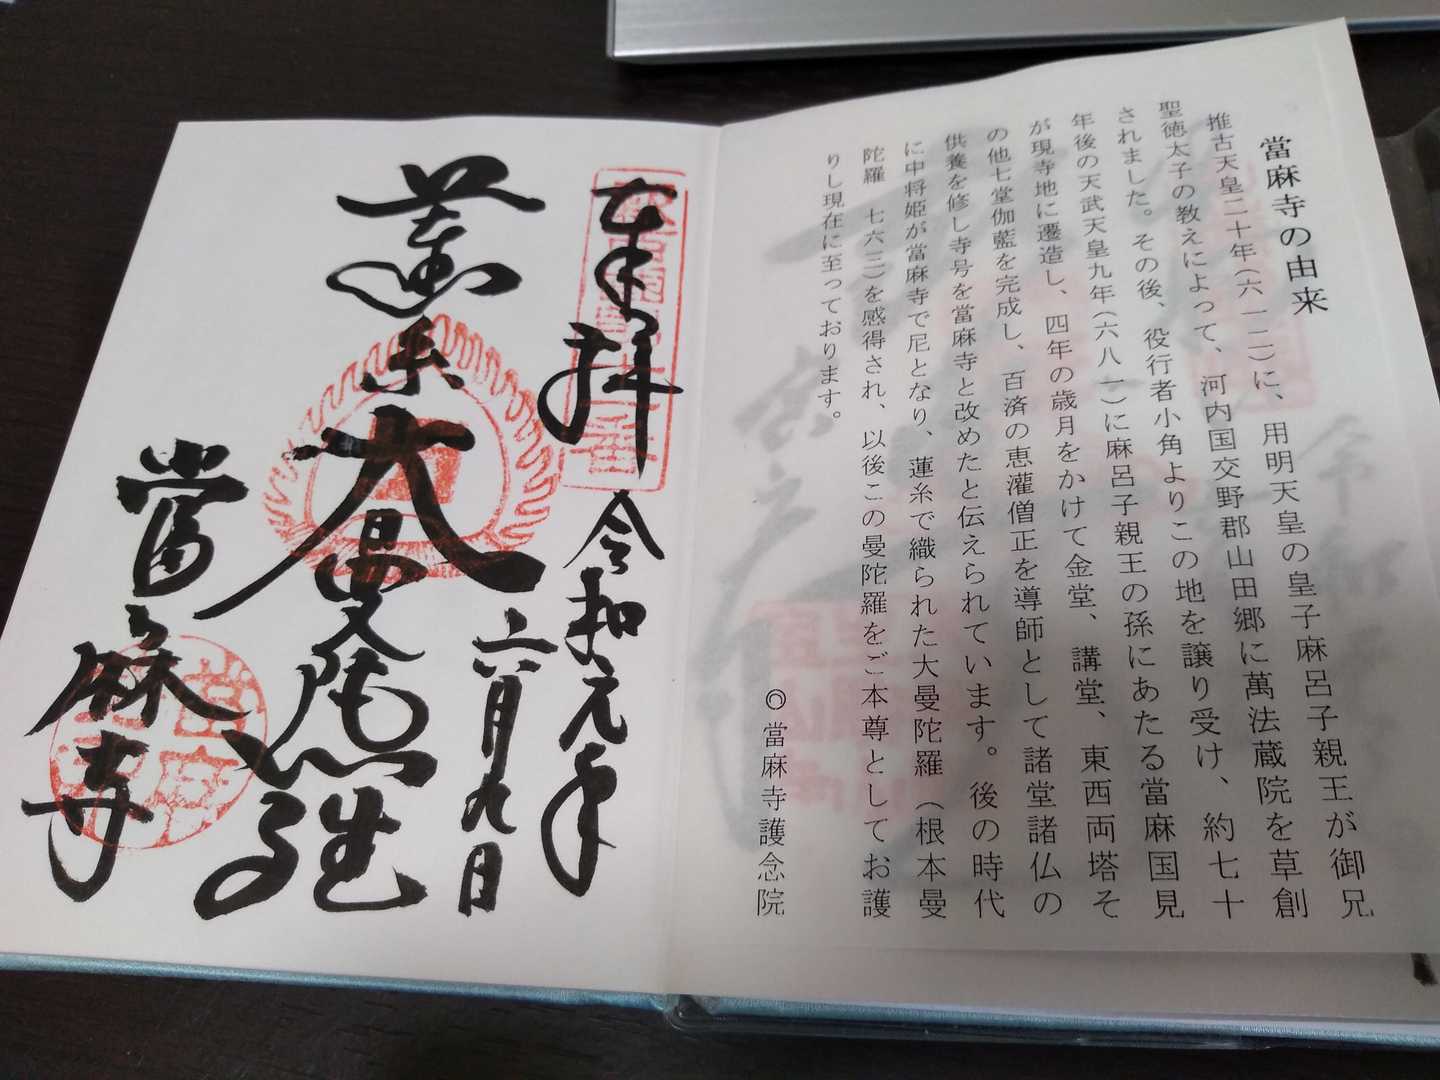 當麻寺の由来
推古天皇二十年(六一二)に、用明天皇の皇子麻呂子親王が御兄
聖徳太子の教えによって、河内国交野郡山田郷に萬法蔵院を草創
されました。その後、役行者小角よりこの地を譲り受け、約七十
年後の天武天皇九年(六八一)に麻呂子親王の孫にあたる當麻国見
が現寺地に遷造し、四年の歳月をかけて金堂、講堂、東西両塔そ
の他七堂伽藍を完成し、百済の恵灌僧正を導師として諸堂諸仏の
供養を修し寺号を當麻寺と改めたと伝えられています。後の時代
に中将姫が當麻寺で尼となり、蓮糸で織られた大曼陀羅(根本曼
陀羅 七六三)を感得され、以後この曼陀羅をご本尊としてお護
りし現在に至っております。
◎當麻寺護念院
奉拝
令和元年
六月九日
蓮糸大曼陀羅
當麻寺